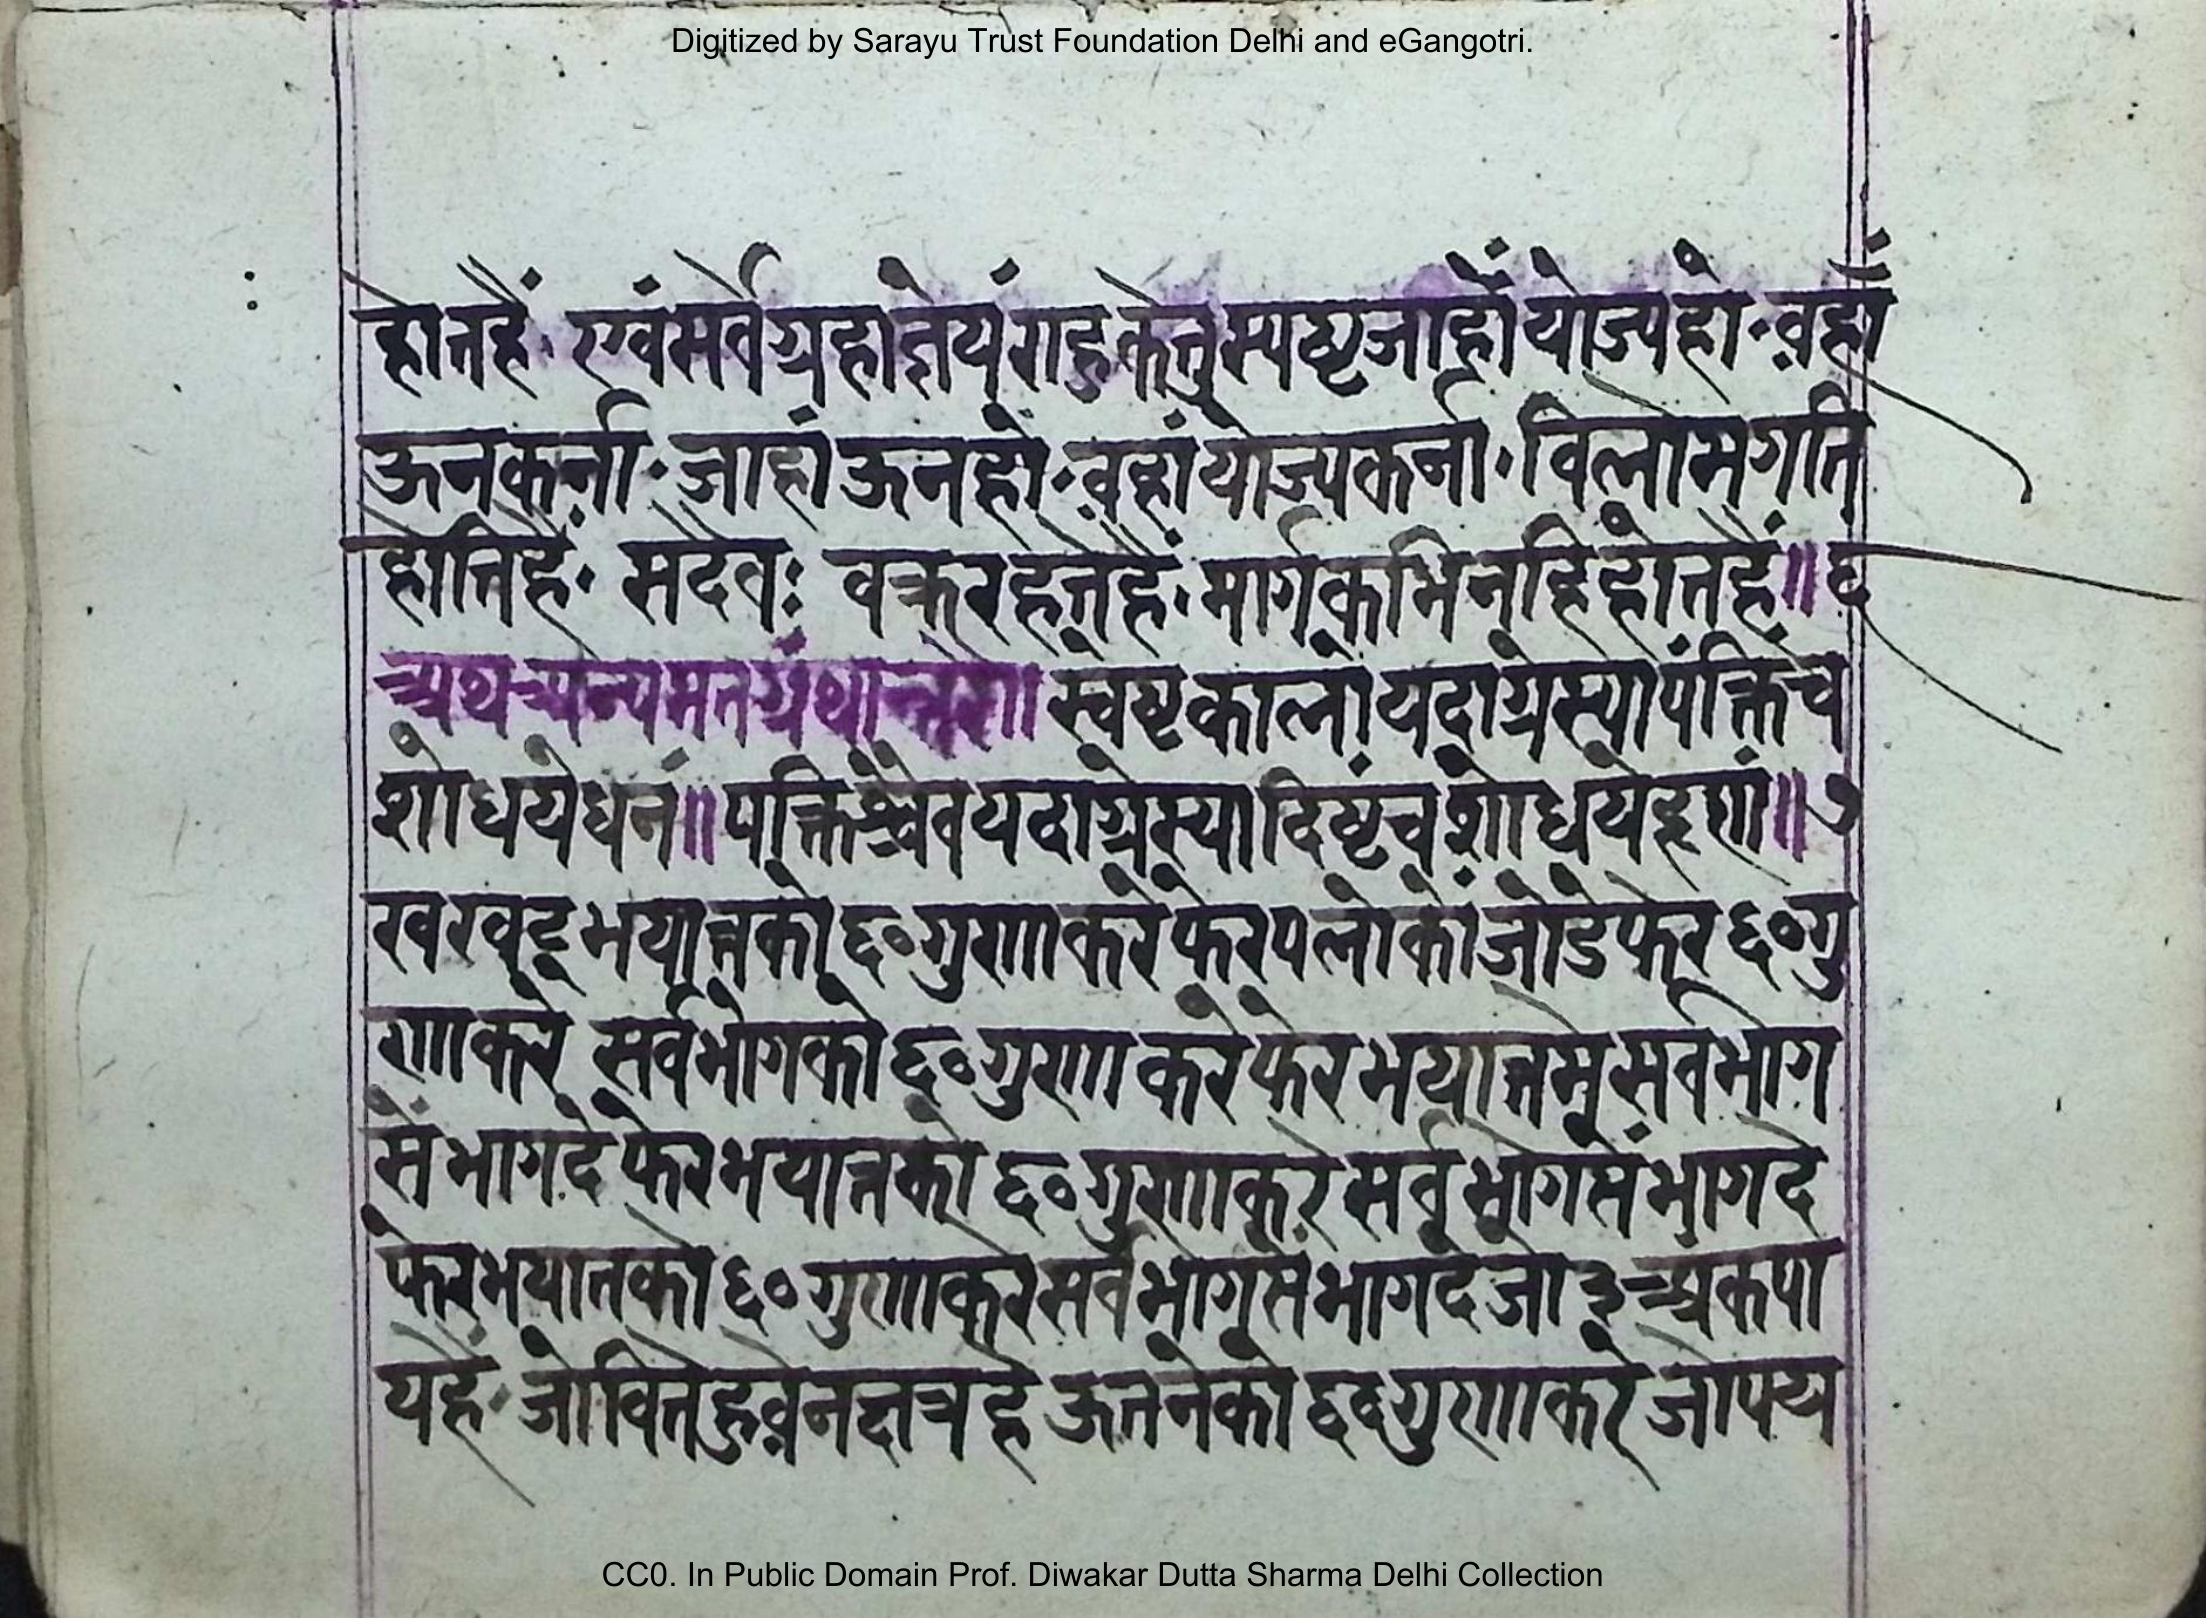 Digitized by Sarayu Trust Foundation Delhi and eGangotri.
होतहैं· एवंसर्वेग्रहाज्ञेयंराहुकेतुस्पष्टजाहाँयोज्यहो·वहाँ
ऊनकर्ना·जाहांऊनहो·वहांयोज्यकर्ना·विलोमगति
होतिहैं· सदैवः वक्ररहतेहैं·मार्गकभिनहिहोतहैं॥६
अथअन्यमतग्रंथान्तरे॥स्वेष्टकालोयदाग्रेस्यापंक्तिंच
शोधयेधनं॥पक्तिश्चैवयदाग्रेस्यादिष्टंचशोधयेदृणं॥७
भयातको६०गुणाकरेफेरपलोकोंजोडेफेर६०गु
णाकरे सर्वभोगको६०गुणाकरेफेरभयातमेसर्वभोग
सेंभागदेफेरभयातको६०गुणाकरेसर्वभोगसेंभागदे
फेरभयातको६०गुणाकरेसर्वभोगसेंभागदेजो३अंकपा
यहैं·जोवितेहुवेनक्षत्रहैऊतनेको६०गुणाकरेजोपय
CC0. In Public Domain Prof. Diwakar Dutta Sharma Delhi Collection